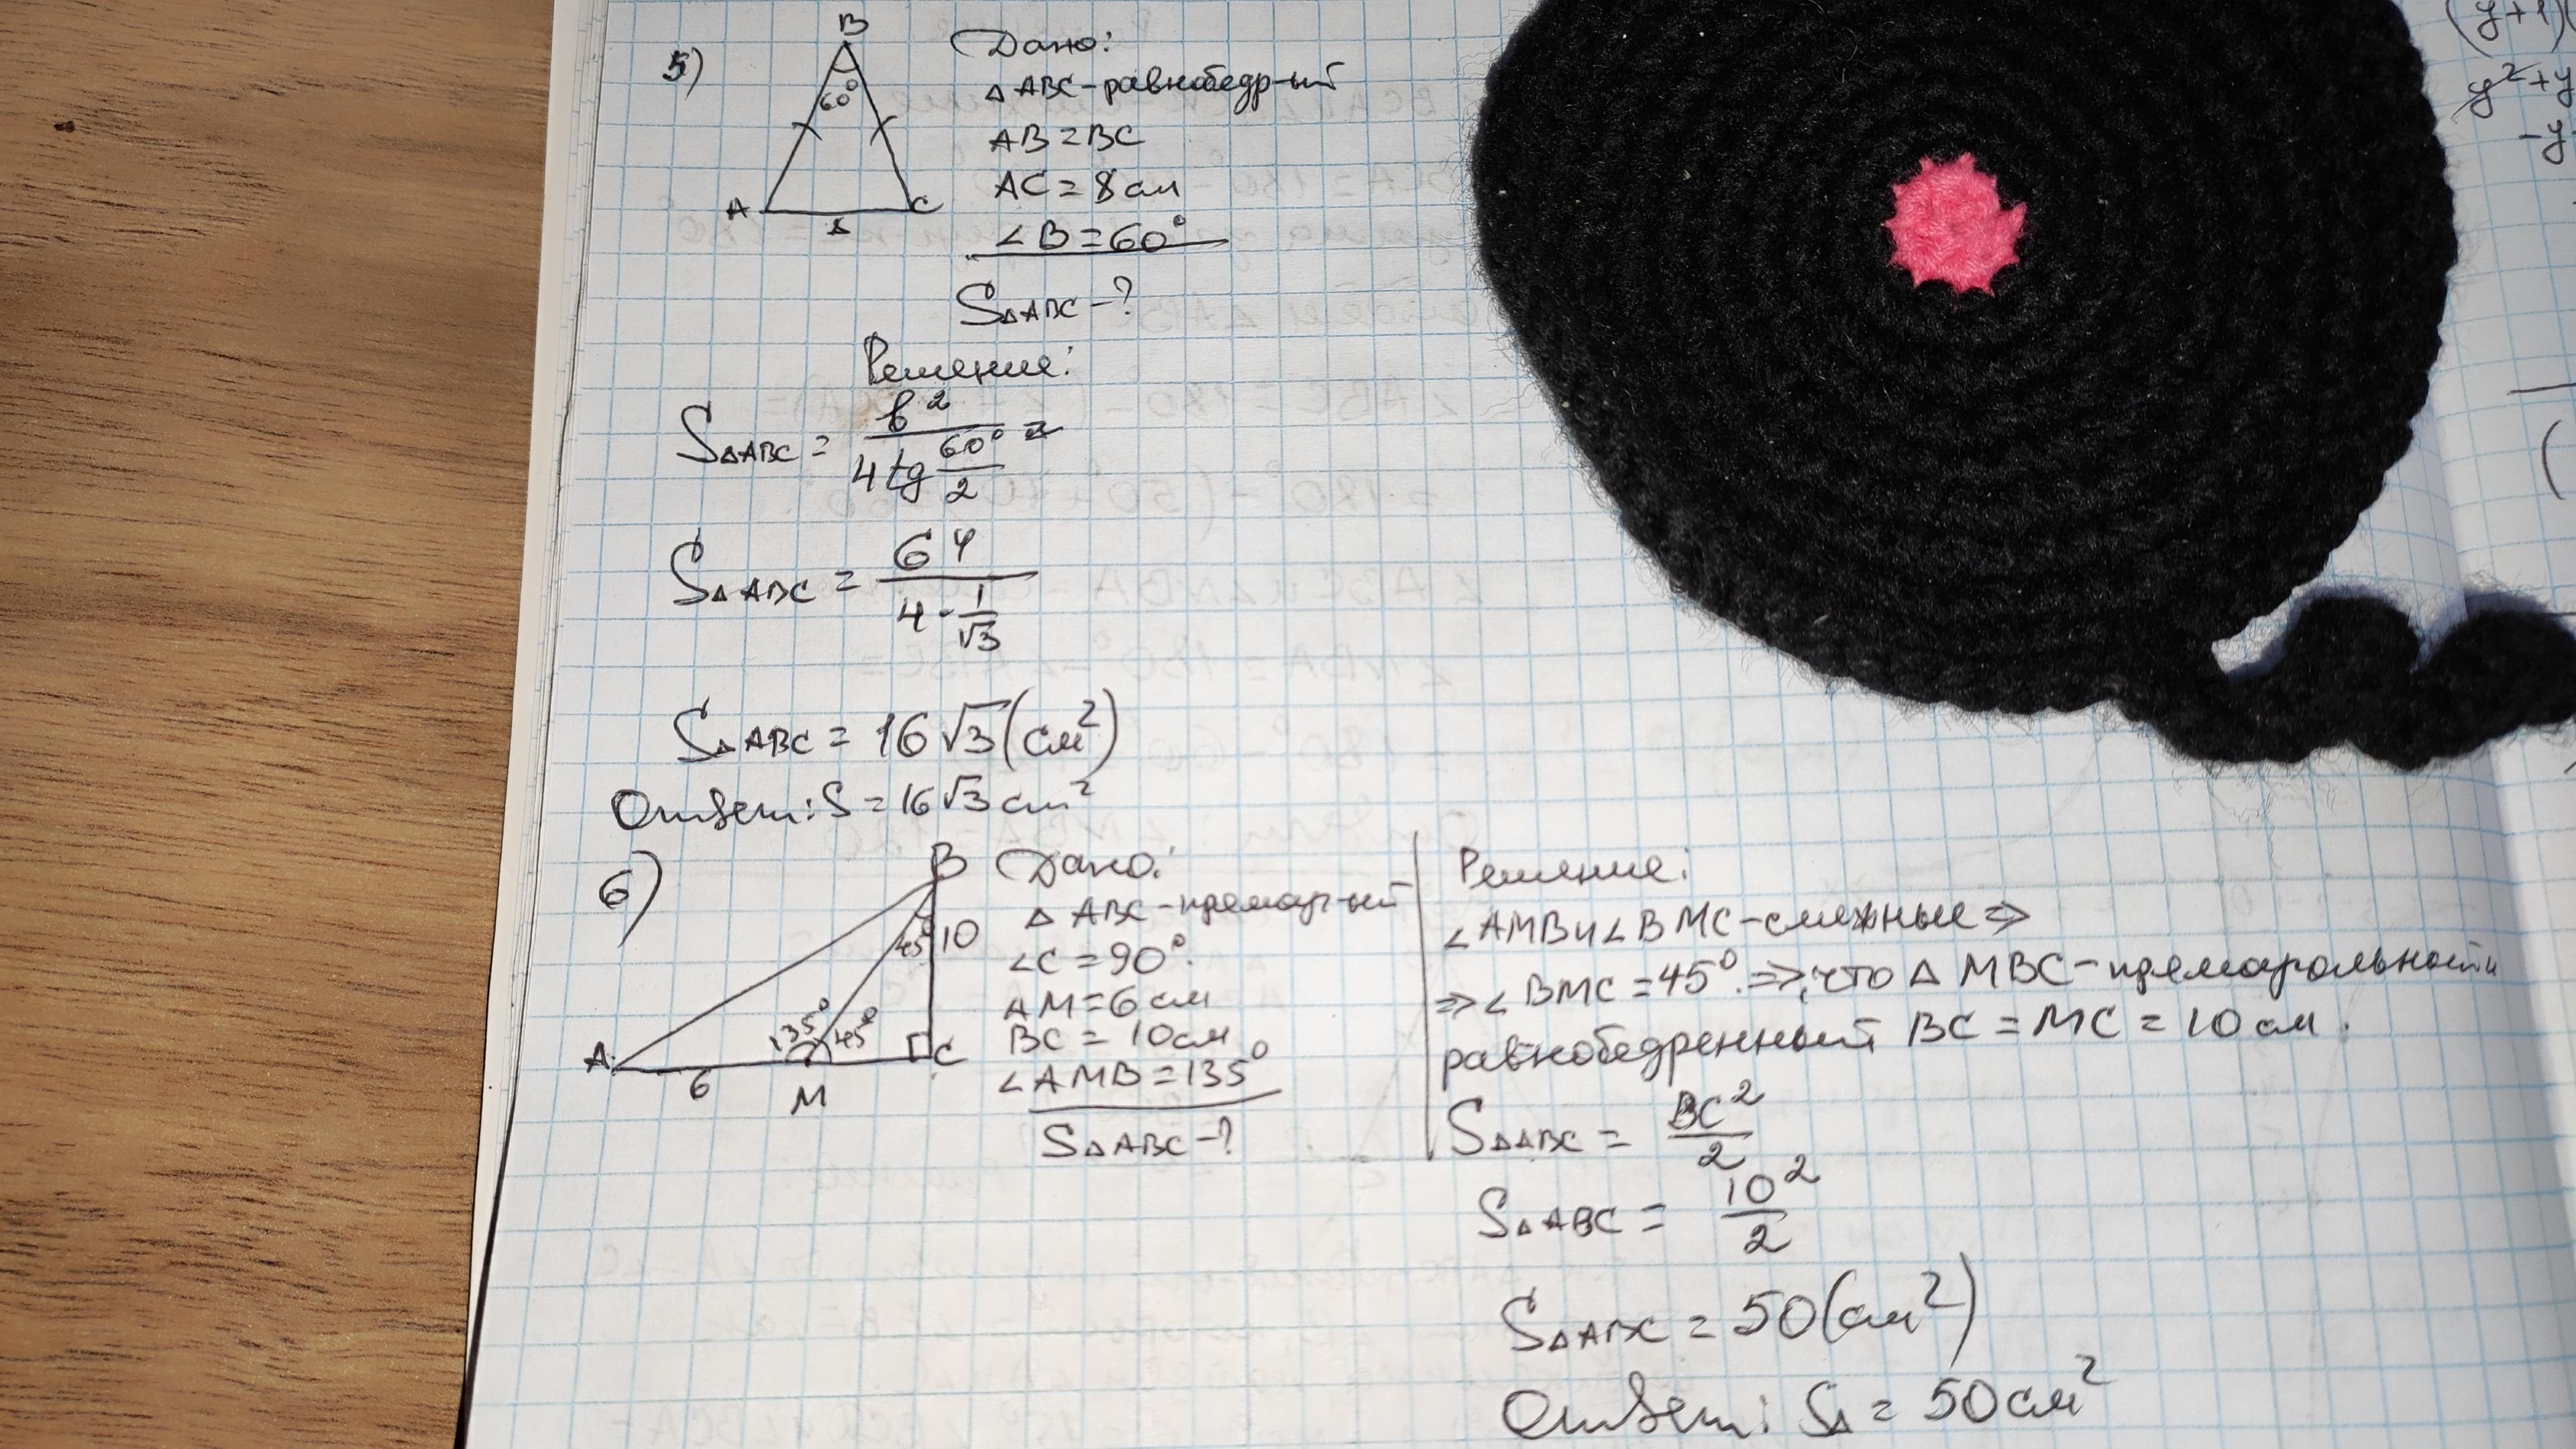 5)
B
60°
A
C
8
Дано:
△ABC-равнобедр-ый
AB=BC
AC=8см
∠B=60°
S△ABC-?
Решение:
S△ABC = b² / 4tg 60°/2 =
S△ABC = 64 / 4·1/√3
S△ABC = 16√3(см²)
Ответ: S=16√3см²
6)
B
45°
10
135°
45°
A
6
M
C
Дано:
△ABC-прямоуг-ый
∠C=90°.
AM=6см
BC=10см
∠AMB=135°
S△ABC-?
Решение:
∠AMB и ∠BMC-смежные ⇒
⇒∠BMC=45°.⇒, что △MBC-прямоугольный
равнобедренный BC=MC=10см.
S△ABC = BC² / 2
S△ABC = 10² / 2
S△ABC = 50(см²)
Ответ: S△=50см²
(y+1)(
y²+y
-y
(